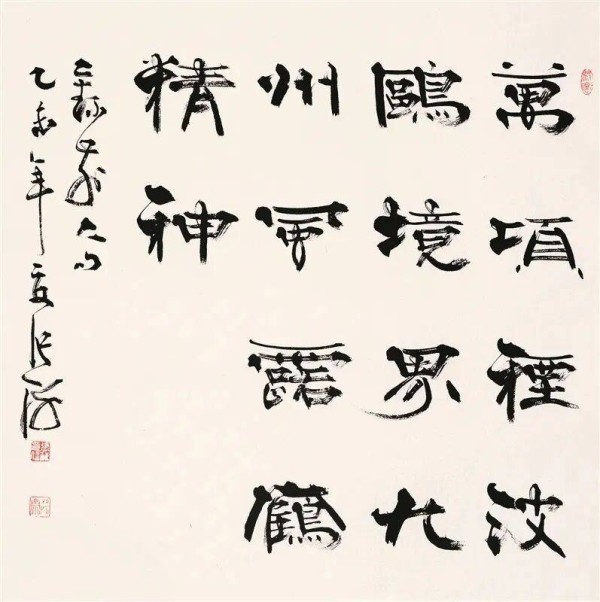 萬頃煙波
鷗境界九
州風露鶴
精神
乙未年夏張海